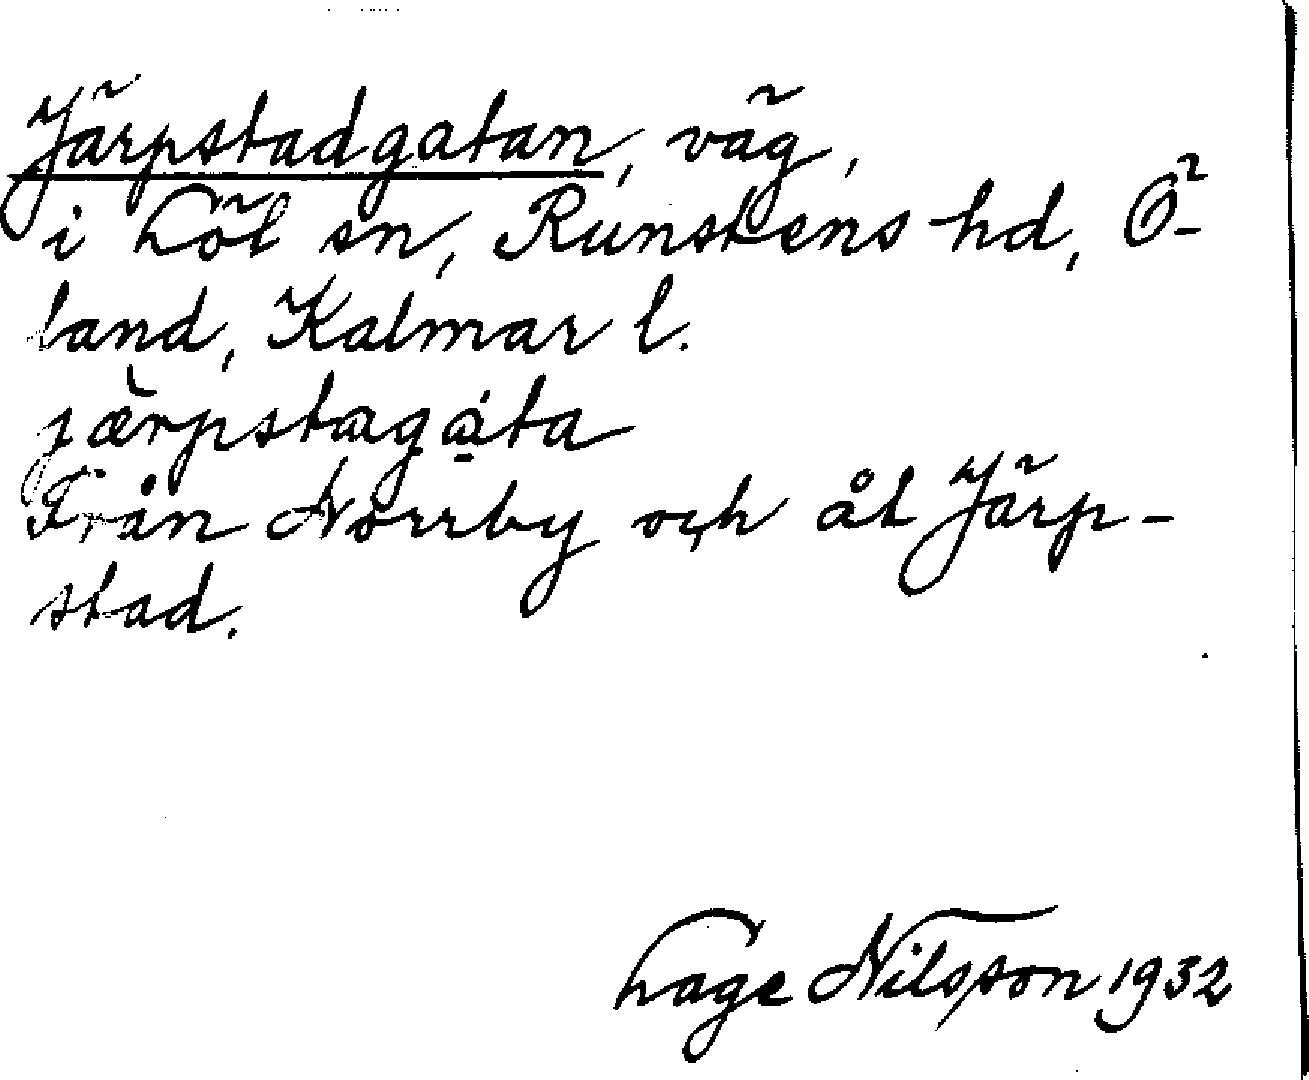 Järpstadgatan, väg,
i Löt sn, Runstens hd, Ö-
land, Kalmar l.
jærpstagáta
Från Norrby och åt Järp-
stad.
Lage Nilsson 1932